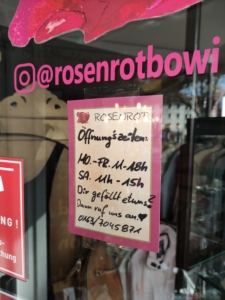 @rosenrotbowi
ROSENROT
Öffnungszeiten:
MO.-FR. 11-18h
SA. 11h-15h
Dir gefällt etwas?
Dann ruf uns an♥
0163/7045871
NG!